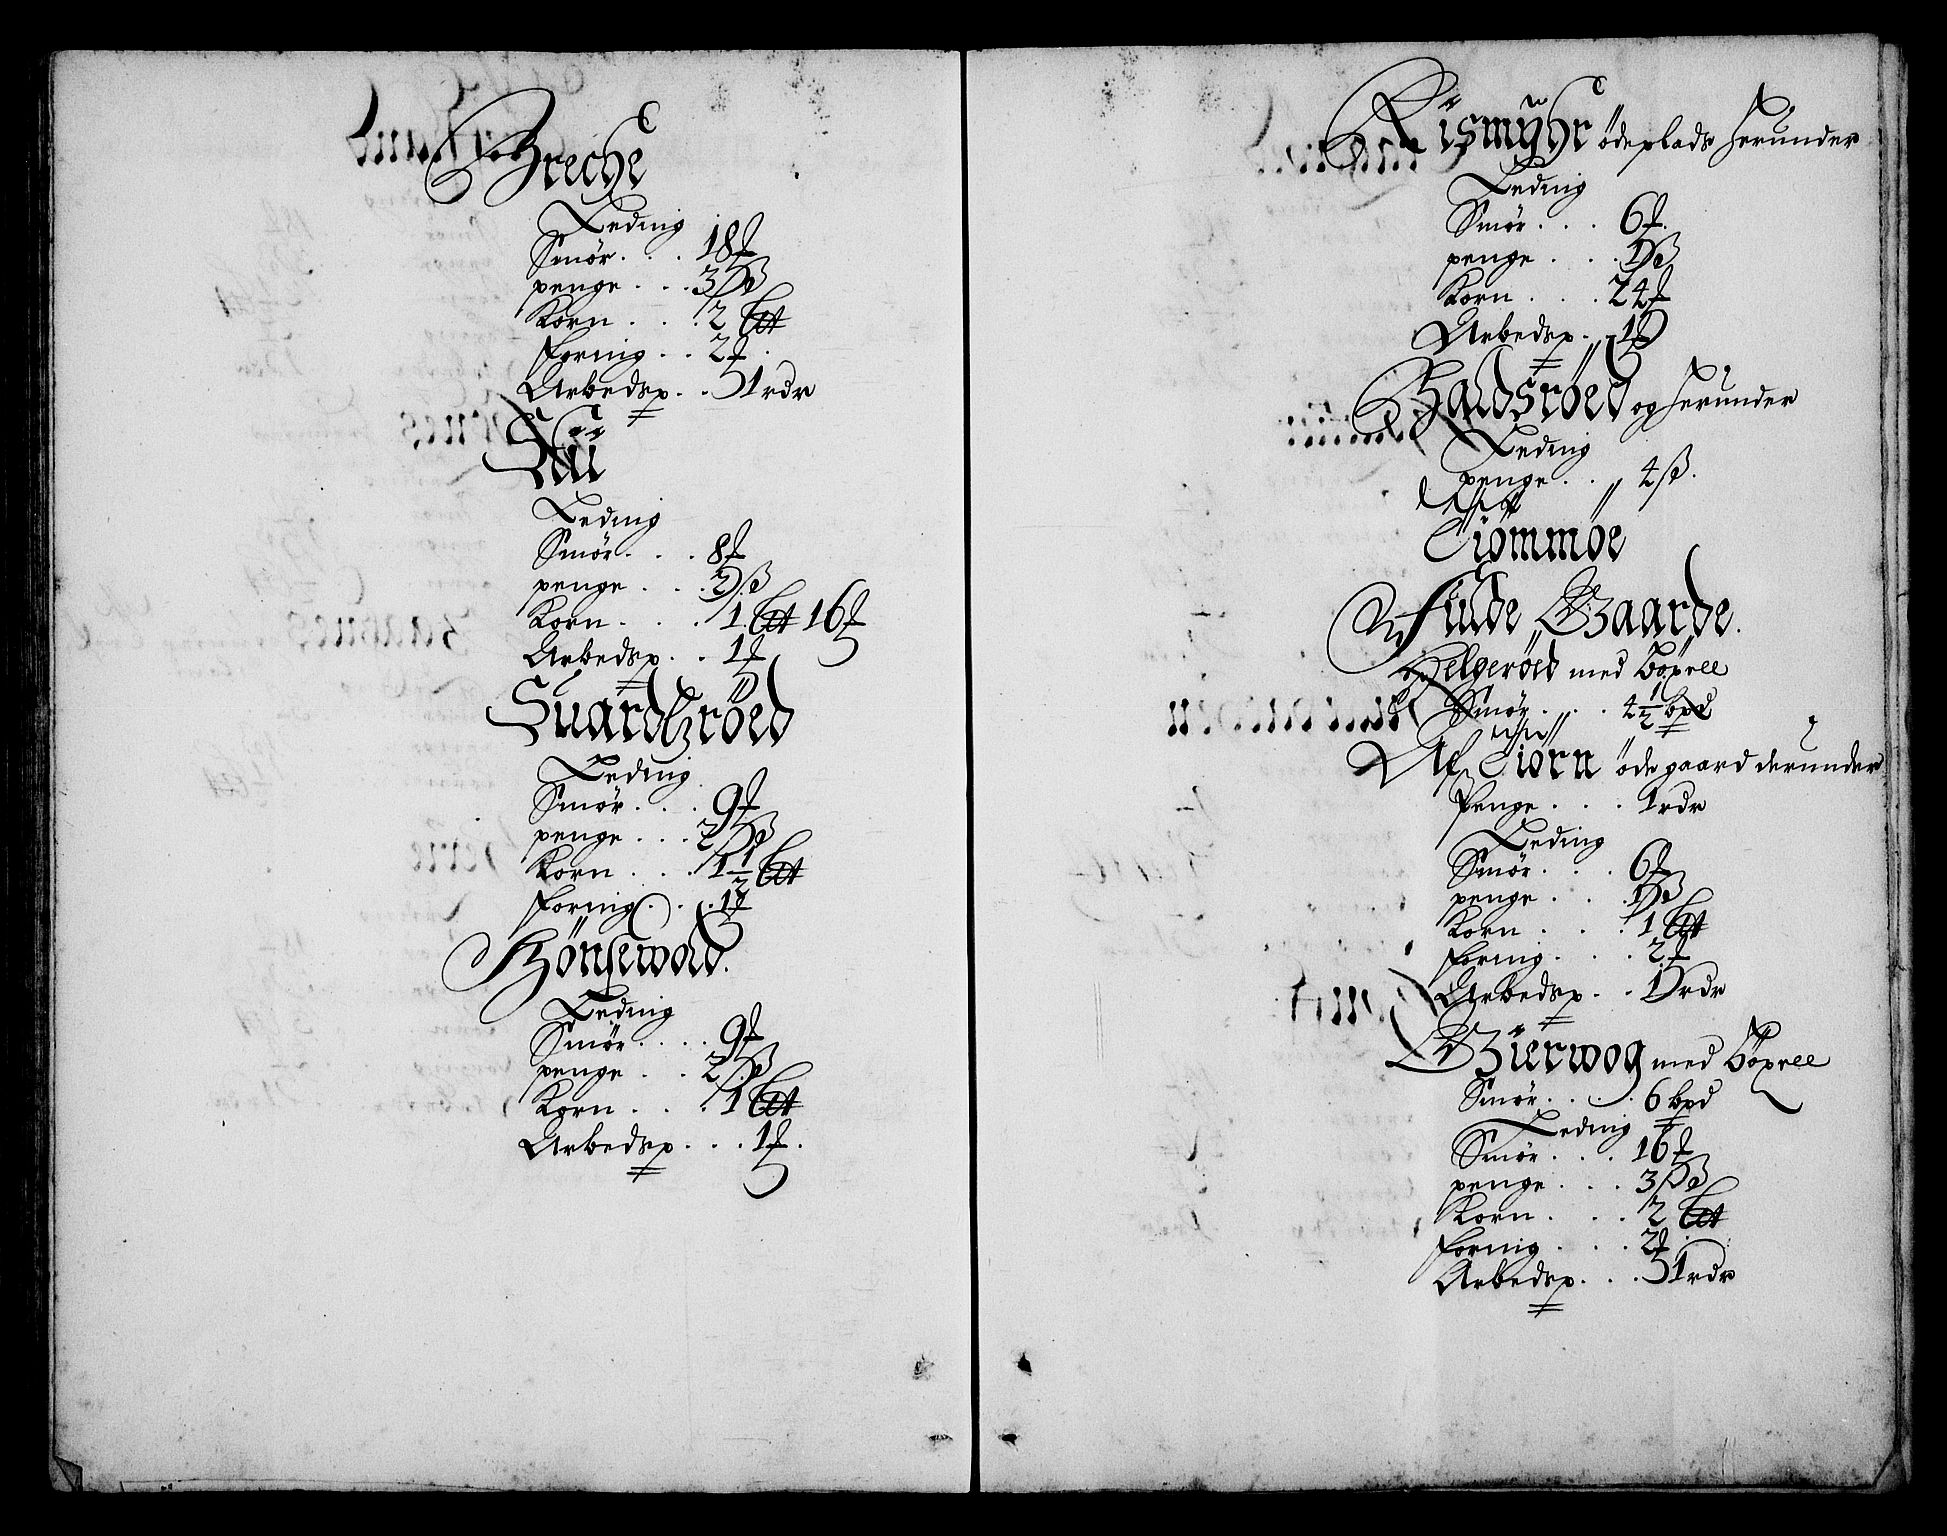 Breche
Leding
Smör . . . 18 ℔
penge . . . 3 ß
Korn . . . 2 Lett
fornig . . 2 ℔.
Arbedsp. . . 1 rdr
Aü
Leding
Smör . . . 8 ℔
penge . . . 2 ß
Korn . . . 1 Lett 16 ℔
Arbedsp. . . 1 ℔
Suardtzröed
Leding
Smör . . . 9 ℔
penge . . . 2 ß
Korn . . . 1½ Lett
fornig . . . 1 ℔
Hönsewold.
Leding
Smör . . . . 9 ℔
penge . . . 2 ß
Korn . . . . 1 Lett
Arbedsp. . . . 1 ℔.
Rismÿhr ödeplads herunder
Leding
Smör . . . 6 ℔.
penge . . . 1 ß
Korn . . . 24 ℔
Arbedsp. . 1 ℔
Baldsröed og herunder
Leding
penge . . 4 ß.
Tiömmöe
Fulde Gaarde.
Helgeröed med böxell
Smör . . . . 4½ bpd
Af Tiörn öde gaard derunder
Penge . . . 1 rdr
Leding
Smör . . . 6 ℔
penge . . . 1 ß
Korn . . . . 1 Lett
fornig . . . . 2 ℔
Arbedsp. . . 1 rdr
Bierwog med böxell
Smör . . . . 6 bpd
Leding
Smör . . . . 16 ℔
penge . . . 3 ß
Korn . . . . 2 Lett
fornig . . . 2 ℔.
Arbedsp. . . . 1 rdr